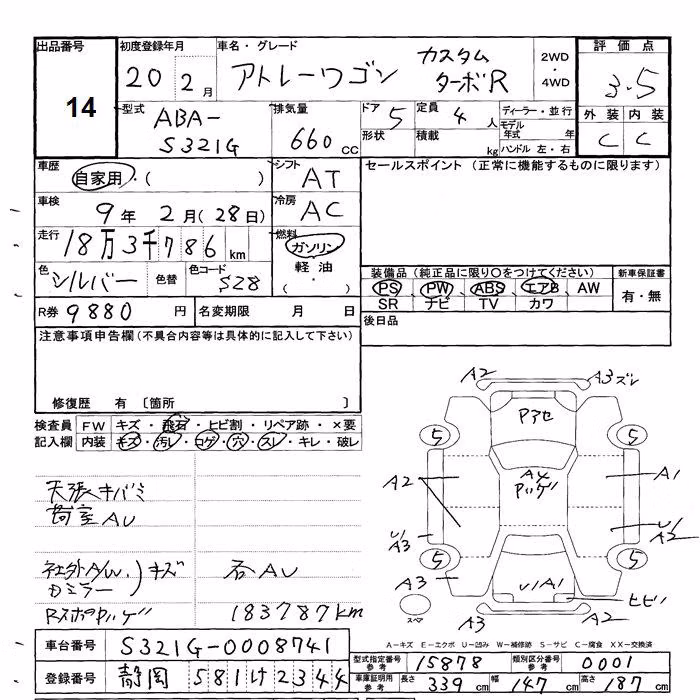 出品番号 初度登録年月 車名・グレード 2WD・4WD 評価点
14 20 2月 アトレーワゴン カスタム ターボR 3.5
型式 ABA-S321G 排気量 660cc ドア 5 定員 4人 ディーラー・並行 外装 内装
形状 積載 kg モデル年式 年 ハンドル 左・右 C C
車歴 自家用・( ) シフト AT セールスポイント (正常に機能するものに限ります)
車検 9年 2月(28日) 冷房 AC
走行 18万3千786km 燃料 ガソリン 軽油 (・)
色 シルバー 色替 色コード S28
装備品(純正品に限り○をつけてください) 新車保証書
PS PW ABS エアB AW 有・無
SR ナビ TV カワ
R券 9880円 名変期限 月 日 後日品
注意事項申告欄(不具合内容等は具体的に記入して下さい)
修復歴 有 〔箇所
検査員 FW キズ・飛石・ヒビ割・リペア跡・×要
記入欄 内装 キズ・汚レ・コゲ・穴・スレ・キレ・破レ
天張キバミ
荷室AU
社外A/W キズ
ミラー
183787km
A2 A3 ズレ
5 5
A2 A4 A1
A3 U/A2
5 5
A3 U/A1 ヒビ
スペア A3 A2
A-キズ E-エクボ U-凹み W-補修跡 S-サビ C-腐食 XX-交換済
車台番号 S321G-0008741 型式指定番号 参考 15878 類別区分番号 参考 0001
登録番号 静岡 581 け 2344 車庫証明用 参考 長さ 339cm 幅 147cm 高さ 187cm